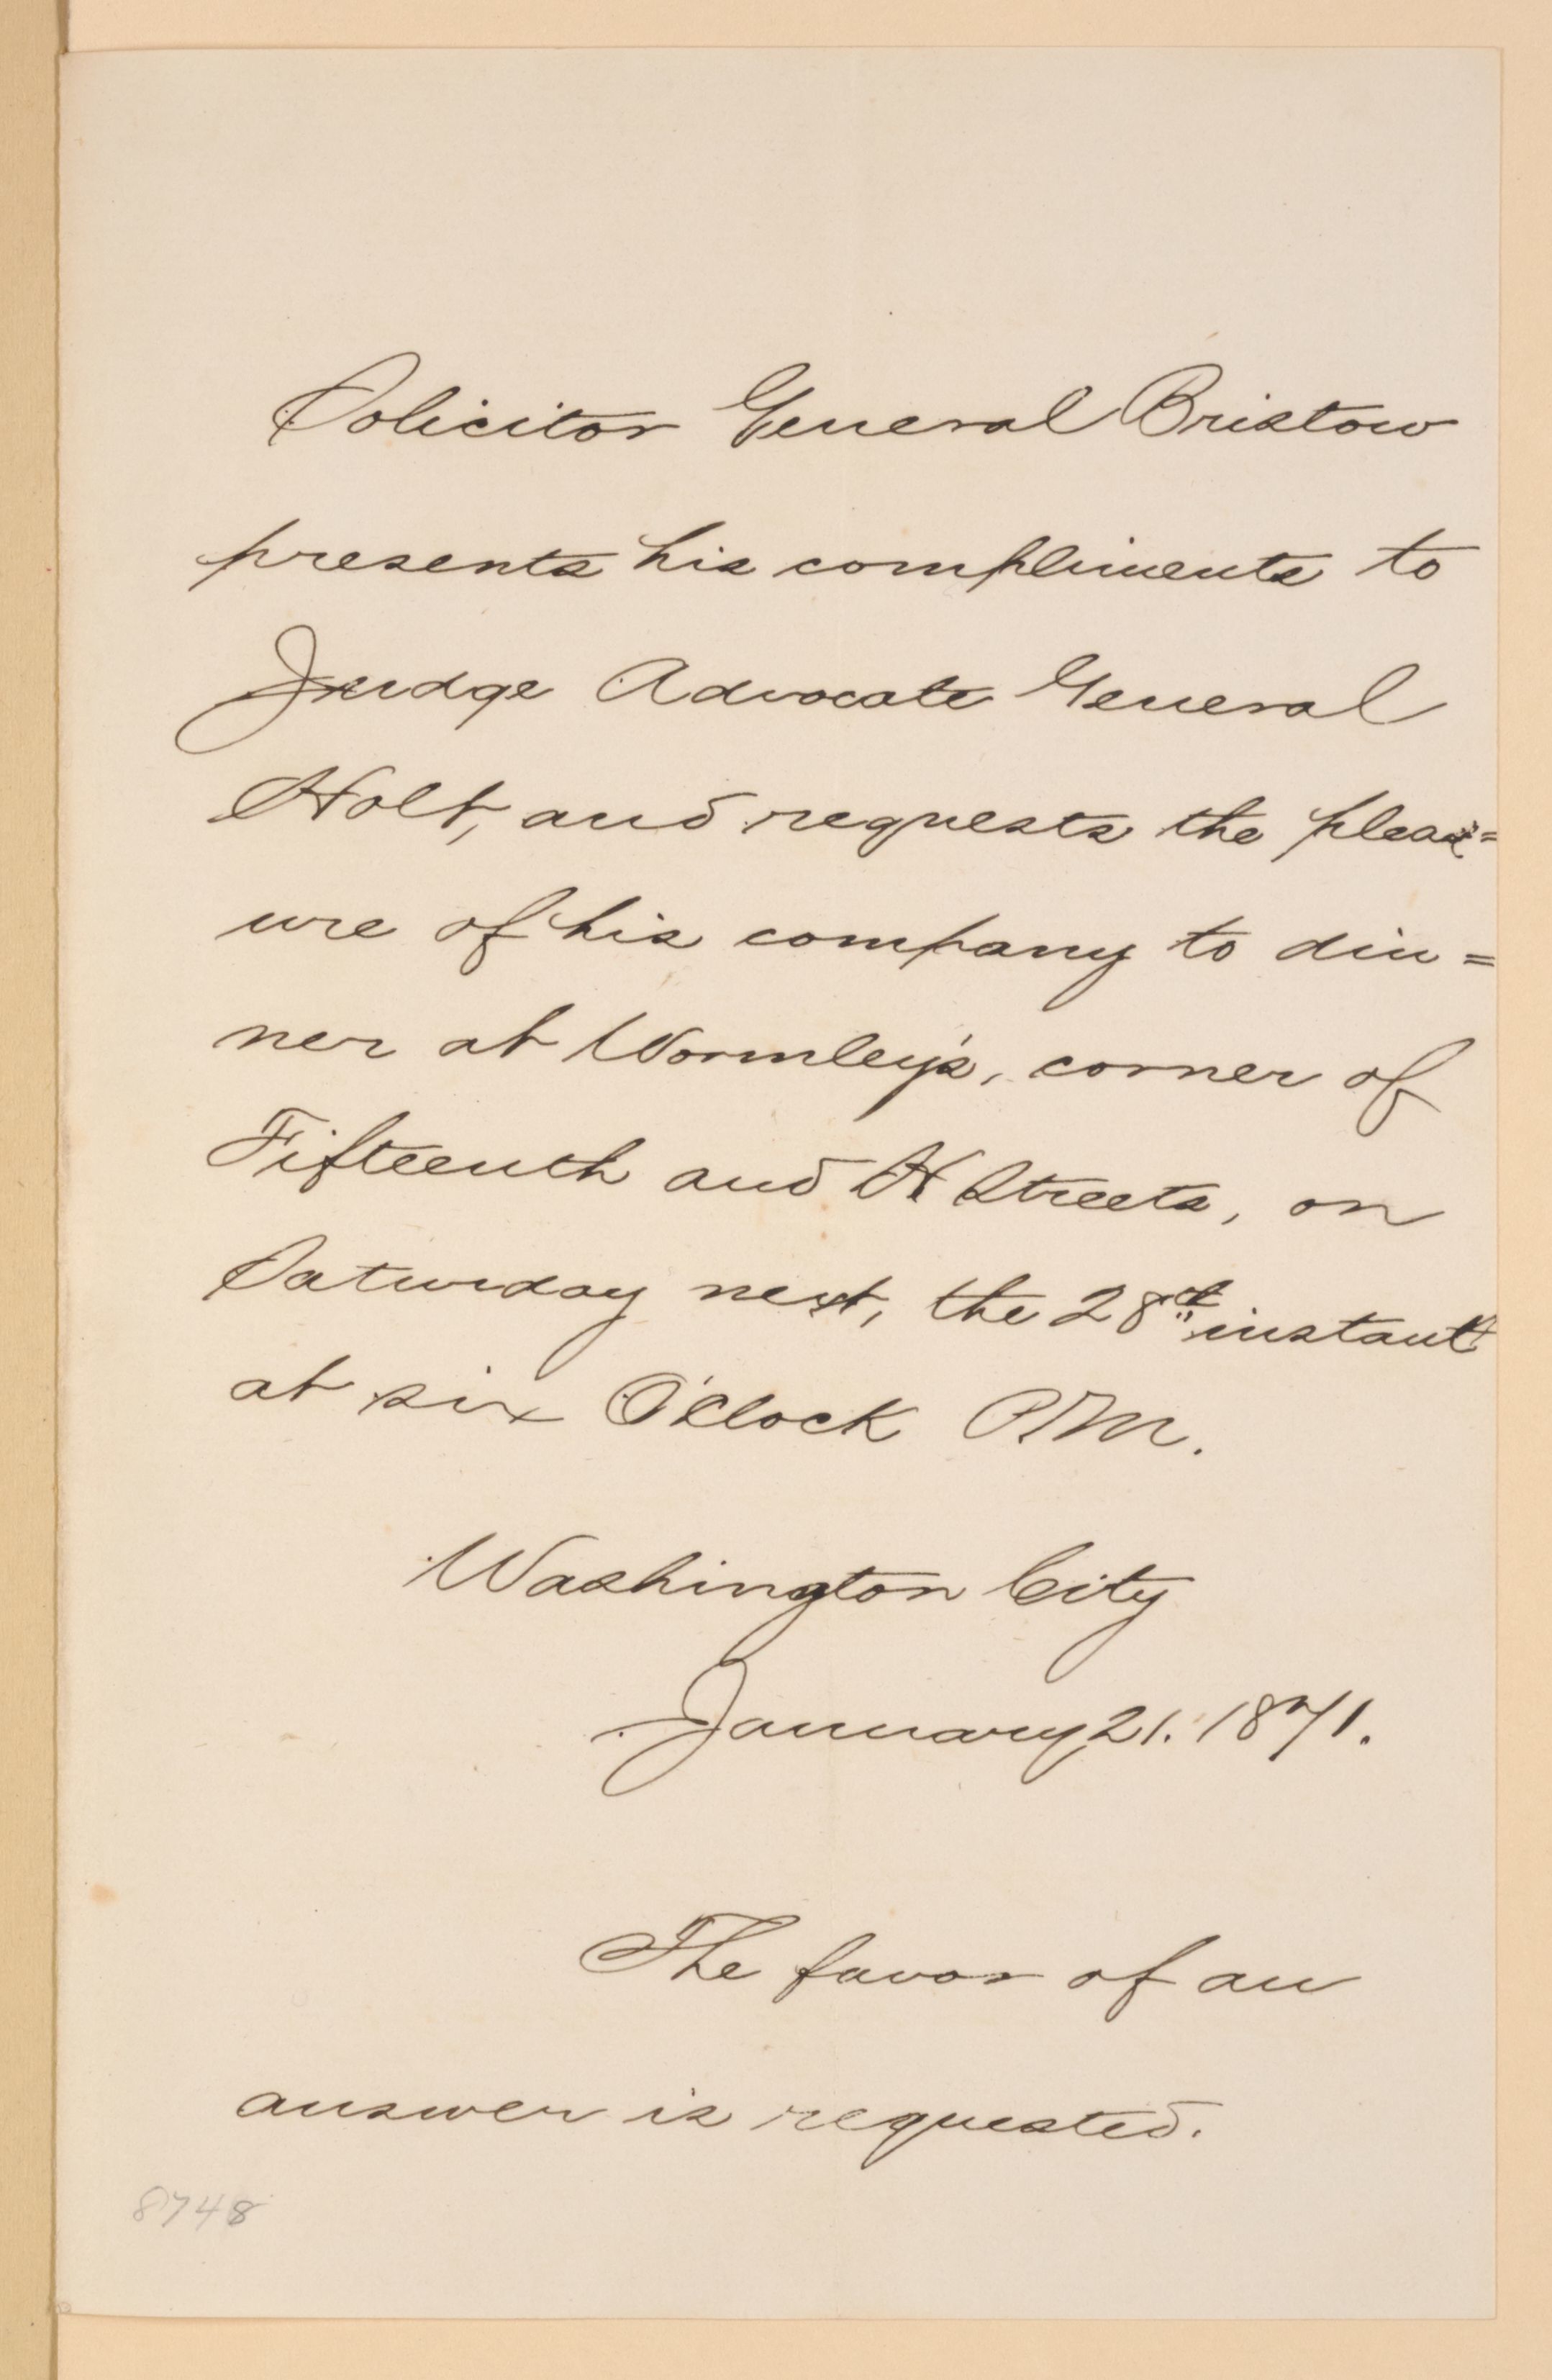 Solicitor General Bristow
presents his compliments to
Judge Advocate General
Holt, and requests the pleas=
ure of his company to din=
ner at Wormley's, corner of
Fifteenth and H Streets, on
Saturday next, the 28th instant
at six O'Clock P.M.
Washington City
January 21. 1871.
The favor of an
answer is requested.
8748